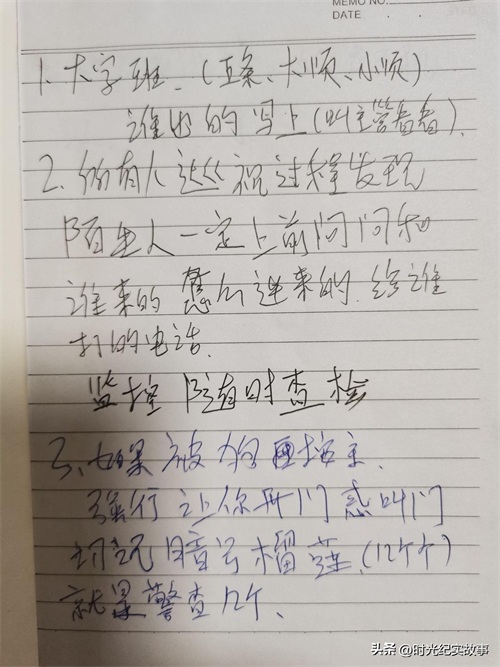 MEMO NO.
DATE
1. 大字班.(豆条、大顺、小顺)
谁出的写上(叫主营看着).
2. 所有人 过程发现
陌生人一定上前问问和
谁来的 怎么进来的.给谁
打的电话.
监控 随时查检
3、如果被狗
强行让你开门 叫门
切记暗号榴莲.(12个个)
就是警查几个、
头条 @时光纪实故事